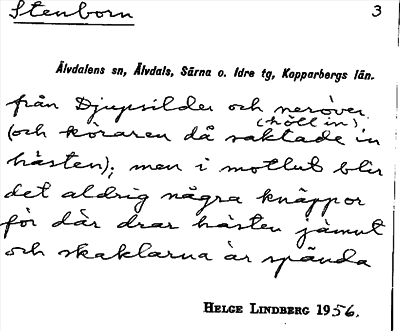 Stenborn 3
Älvdalens sn, Älvdals, Särna o. Idre tg, Kopparbergs län.
från Djupsilder och neröver
(höll in),
(och köraren då saktade in
hästen); men i motlut blir
det aldrig några knäppor
för där drar hästen jämnt
och skaklarna är spända
HELGE LINDBERG 1956.